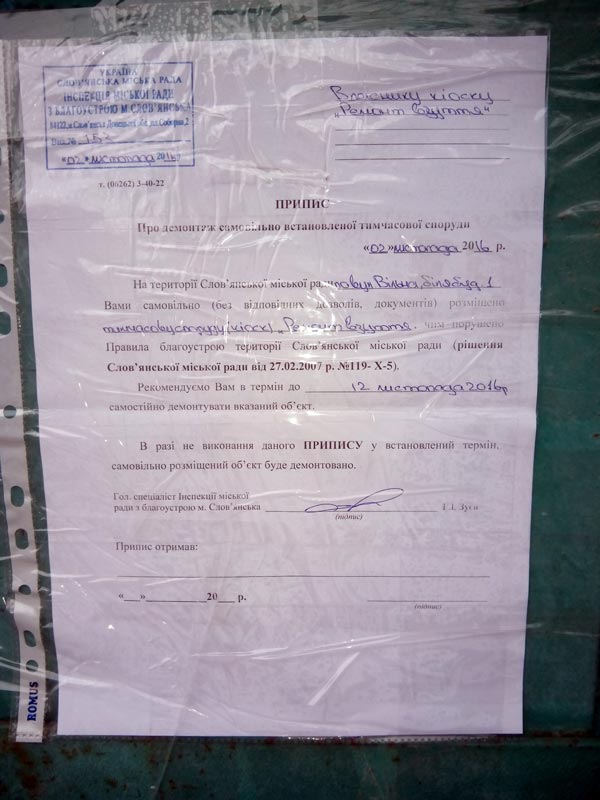 УКРАЇНА
СЛОВ'ЯНСЬКА МІСЬКА РАДА
ІНСПЕКЦІЯ МІСЬКОЇ РАДИ
З БЛАГОУСТРОЮ М. СЛОВ'ЯНСЬКА
84122, м. Слов'янськ Донецької обл. пл. Соборна, 2
Вих. № 153
«02» листопада 2016р
Власнику кіоску
"Ремонт взуття"
т. (06262) 3-40-22
ПРИПИС
Про демонтаж самовільно встановленої тимчасової споруди
«02» листопада 2016 р.
На території Слов'янської міської ради по вул Вільна, біля буд. 1
Вами самовільно (без відповідних дозволів, документів) розміщено
тимчасову споруду (кіоск) "Ремонт взуття", чим порушено
Правила благоустрою території Слов'янської міської ради (рішення
Слов'янської міської ради від 27.02.2007 р. №119- X-5).
Рекомендуємо Вам в термін до 12 листопада 2016р
самостійно демонтувати вказаний об'єкт.
В разі не виконання даного ПРИПИСУ у встановлений термін,
самовільно розміщений об'єкт буде демонтовано.
Гол. спеціаліст Інспекції міської
ради з благоустрою м. Слов'янська Г.І. Зуєв
(підпис)
Припис отримав:
«___»___________20___ р.
(підпис)
ROMUS